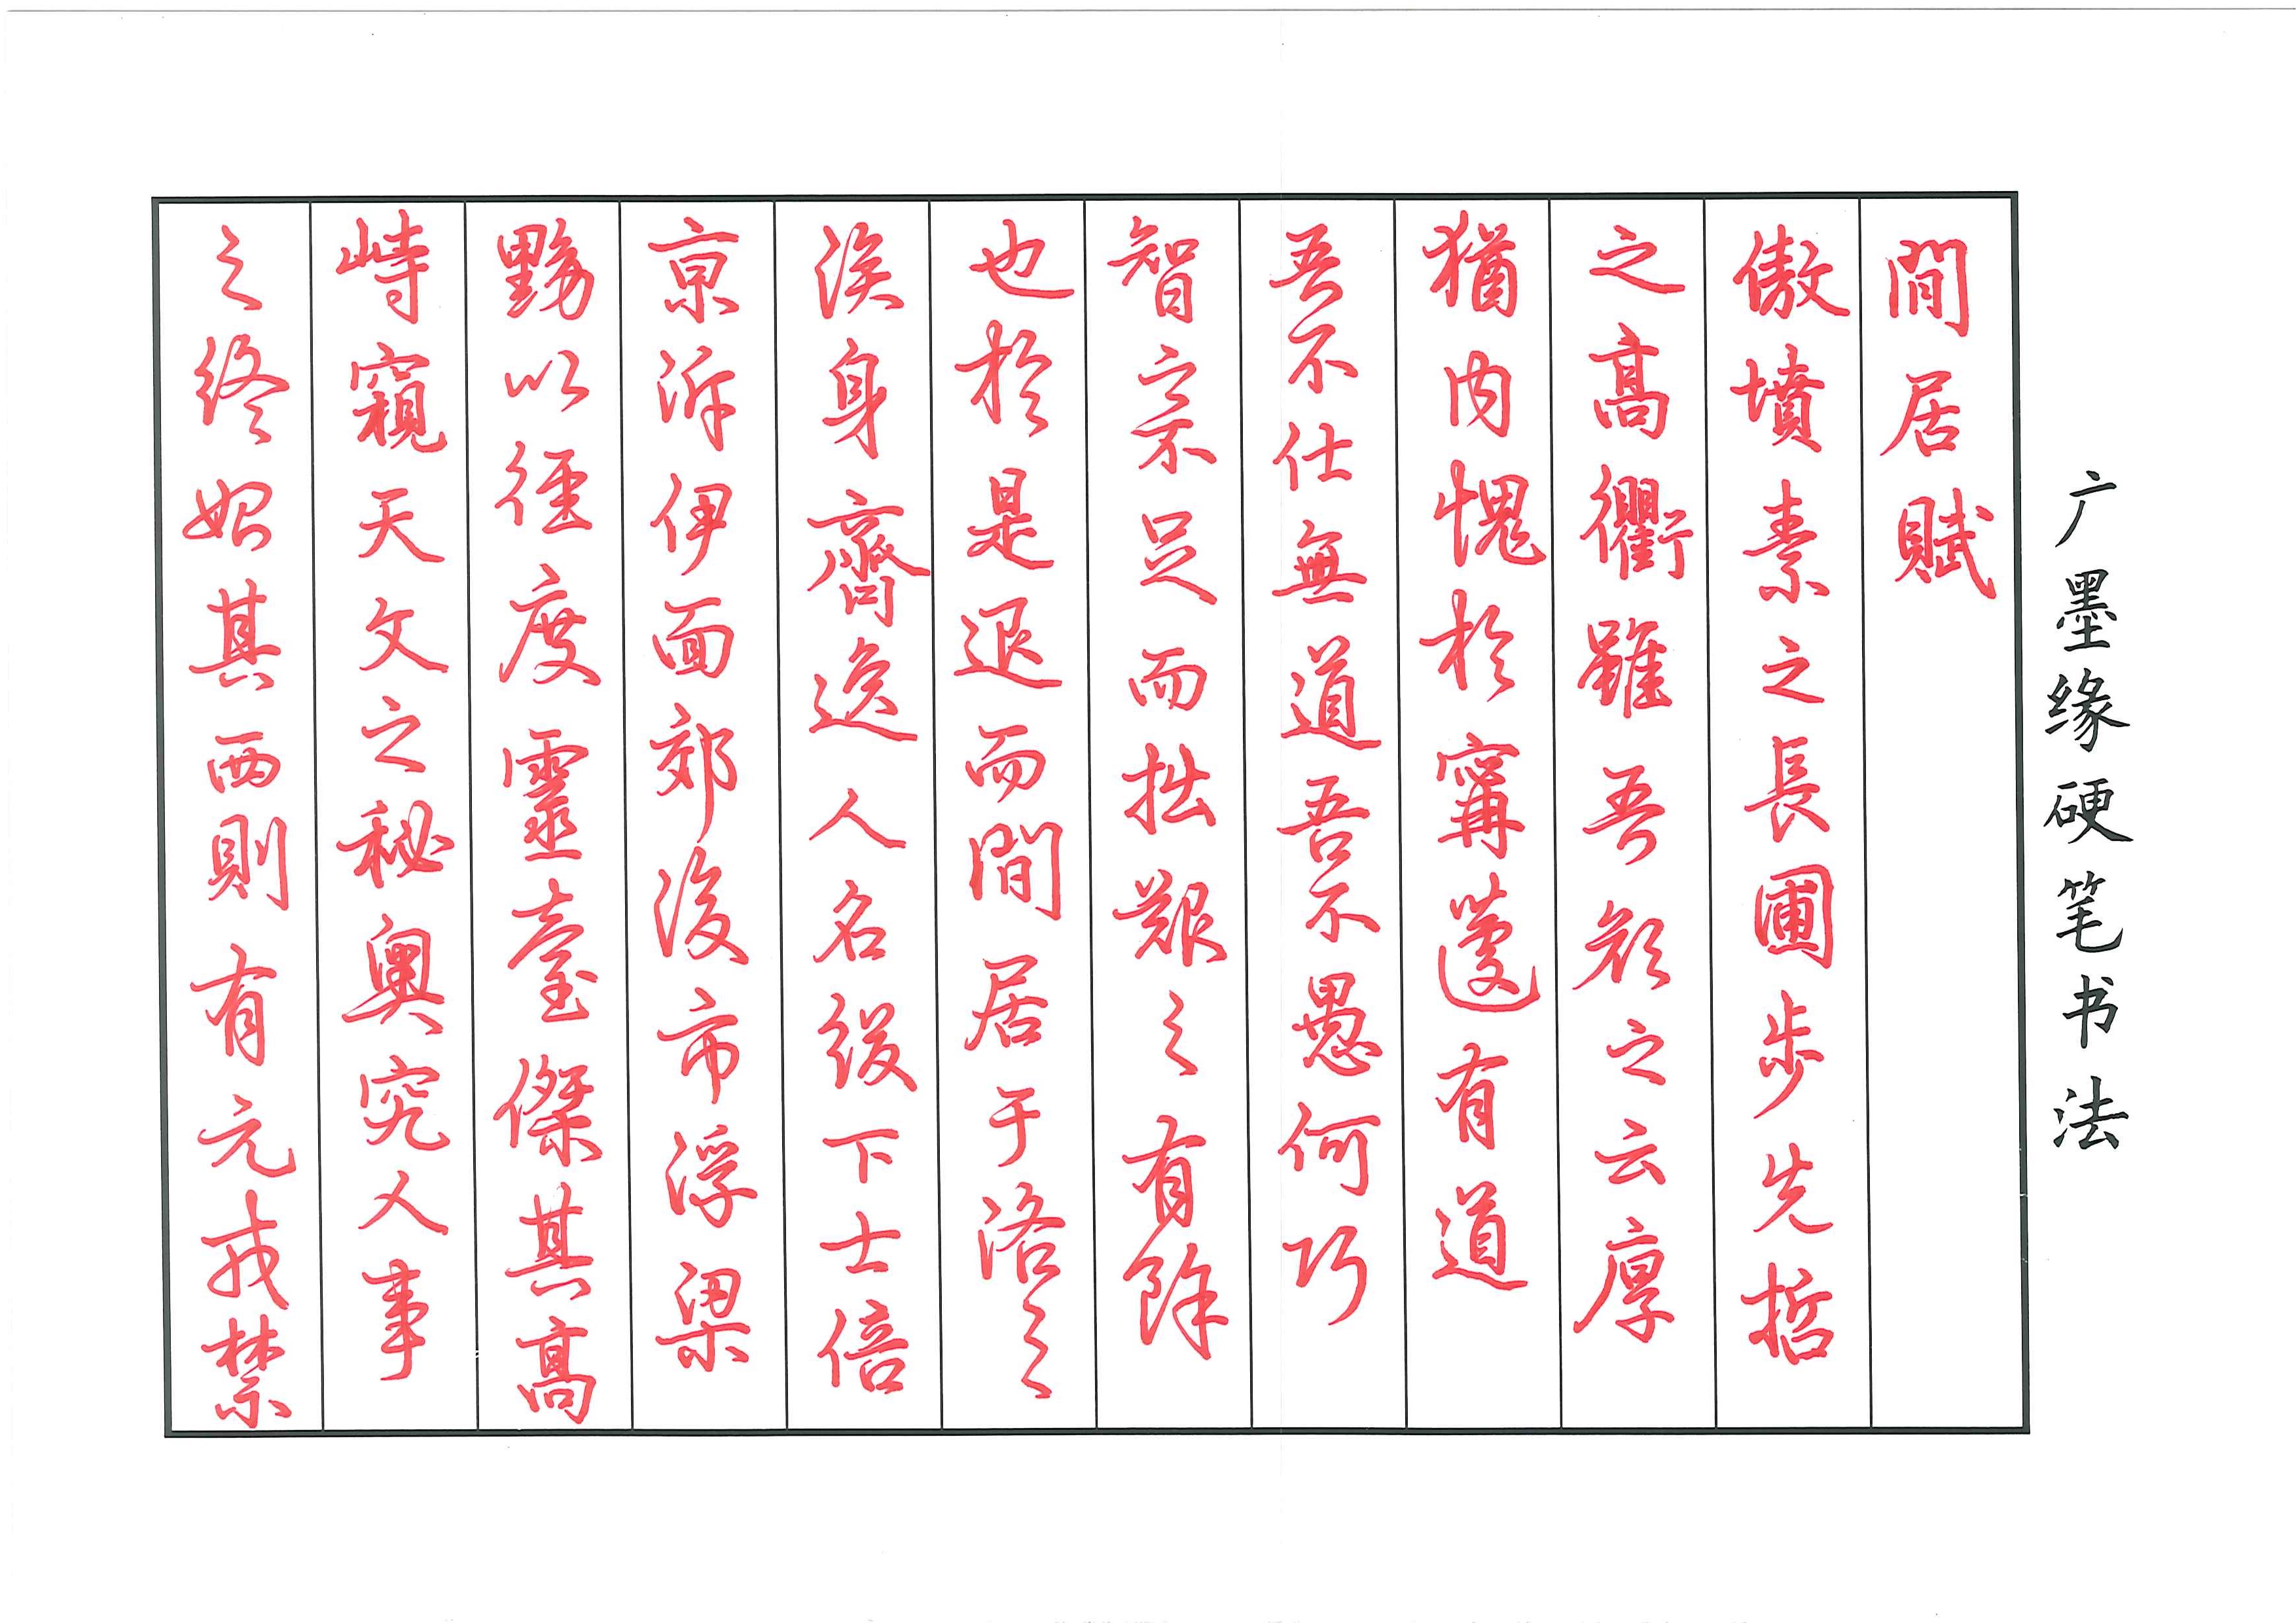 广墨缘硬笔书法
間居賦
傲墳素之長圃步先哲
之高衢雖吾顔之云厚
猶内愧於寗蘧有道
吾不仕無道吾不愚何巧
智之不足而拙艱之有餘
也於是退而間居于洛之
涘身齊逸人名綴下士倍
京泝伊面郊後市浮梁
黝以徑度靈臺傑其高
峙窺天文之秘奥究人事
之終始其西則有元戎禁